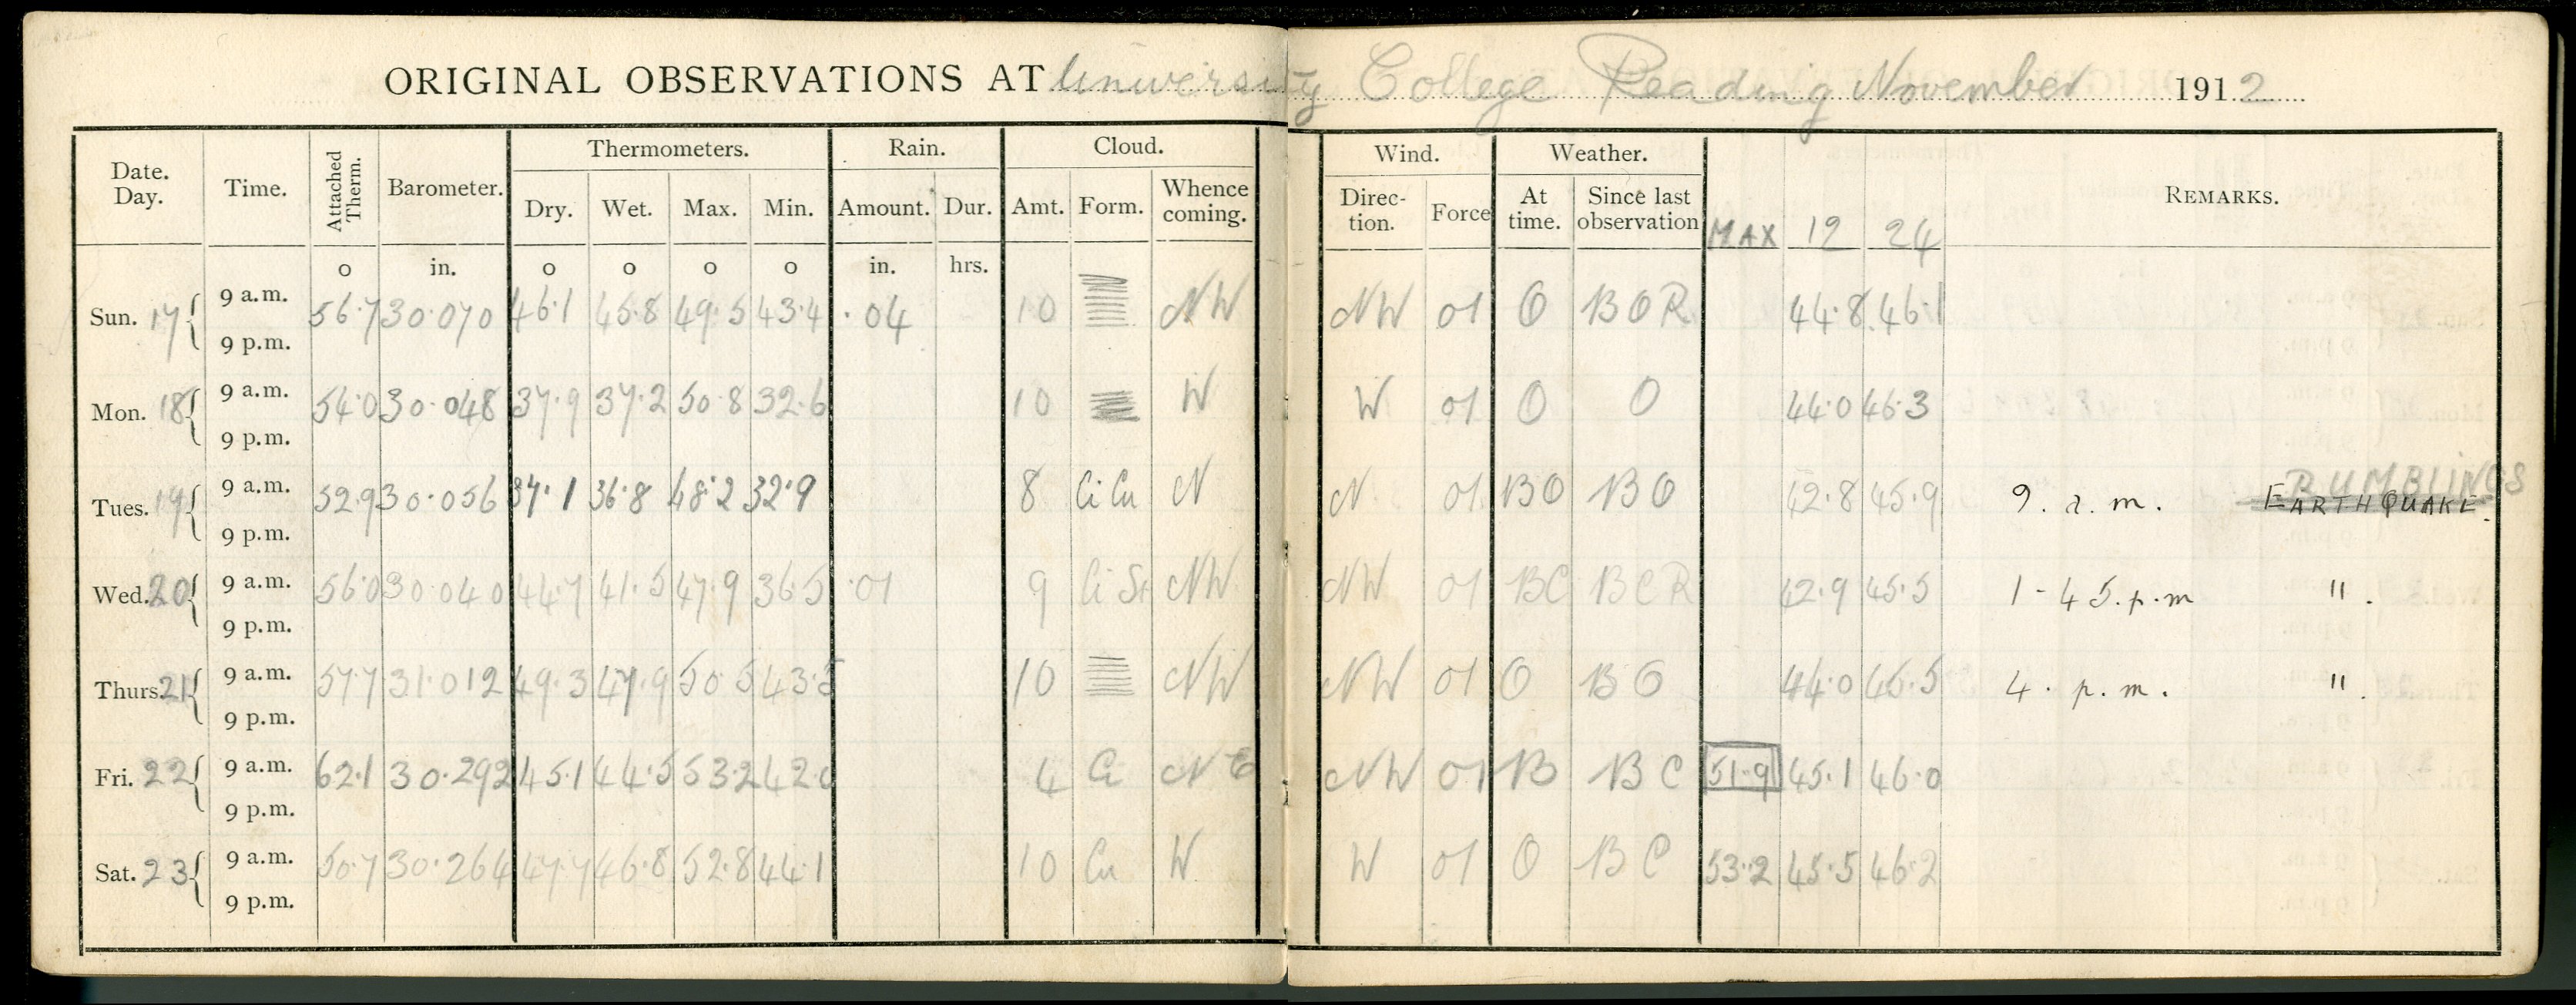 ORIGINAL OBSERVATIONS AT University College Reading November 1912
Date. Day. Time. Attached Therm. Barometer. Thermometers. Rain. Cloud. Wind. Weather. REMARKS.
Dry. Wet. Max. Min. Amount. Dur. Amt. Form. Whence coming. Direc- tion. Force At time. Since last observation MAX 12 24
o in. o o o o in. hrs.
Sun. 17 9 a.m. 56.7 30.070 46.1 45.8 49.5 43.4 .04 10 NW NW 01 O B O R 44.8 46.1
9 p.m.
Mon. 18 9 a.m. 54.0 30.048 37.9 37.2 50.8 32.6 10 W W 01 O O 44.0 46.3
9 p.m.
RUMBLINGS
Tues. 19 9 a.m. 52.9 30.056 37.1 36.8 48.2 32.9 8 Ci Cu N N 01 BO B O 42.8 45.9 9. a. m. EARTHQUAKE.
9 p.m.
Wed. 20 9 a.m. 56.0 30.040 44.7 41.5 47.9 36.5 .01 9 Ci St NW NW 01 BC B C R 42.9 45.5 1-45.p.m ".
9 p.m.
Thurs. 21 9 a.m. 57.7 31.012 49.3 47.9 50.5 43.5 10 NW NW 01 O B O 44.0 45.5 4. p. m. ".
9 p.m.
Fri. 22 9 a.m. 62.1 30.292 45.1 44.5 53.2 42.0 4 Ci NE NW 01 B B C 51.9 45.1 46.0
9 p.m.
Sat. 23 9 a.m. 50.7 30.264 47.7 46.8 52.8 44.1 10 Cu W W 01 O B C 53.2 45.5 46.2
9 p.m.